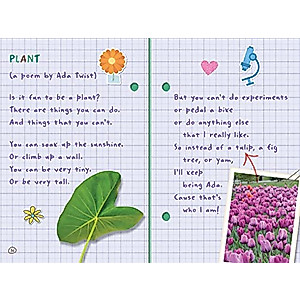 PLANT
(a poem by Ada Twist)
Is it fun to be a plant?
There are things you can do.
And things that you can't.
You can soak up the sunshine.
Or climb up a wall.
You can be very tiny.
Or be very tall.
But you can't do experiments
or pedal a bike
or do anything else
that I really like.
So instead of a tulip, a fig
tree, or yam,
I'll keep
being Ada.
Cause that's
who I am!